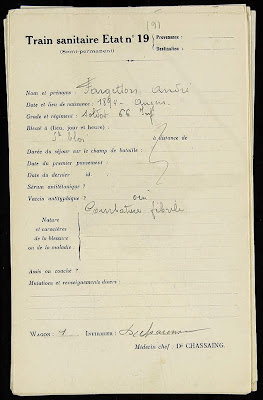 191
Train sanitaire Etat n° 19
Provenance :
(Semi-permanent)
Destination :
Nom et prénoms : Fargetton André
Date et lieu de naissance : 1894 - Angers
Grade et régiment : Soldat 66 Inf
Blessé à (lieu, jour et heure) :
St Eloi à distance de
Durée du séjour sur le champ de bataille :
Date du premier pansement :
Date du dernier id. :
Sérum antitétanique ?
Vaccin antityphique ? oui
Courbature fébrile
Nature
et caractères
de la blessure
ou de la maladie :
Assis ou couché ?
Mutations et renseignements divers :
Wagon : 1 Infirmier :
Médecin chef : Dr CHASSAING.